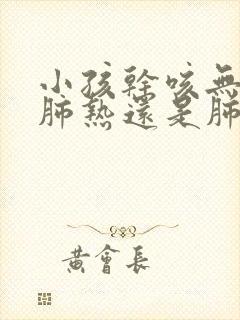 小孩幹咳無
肺熱還是肺
黃會長